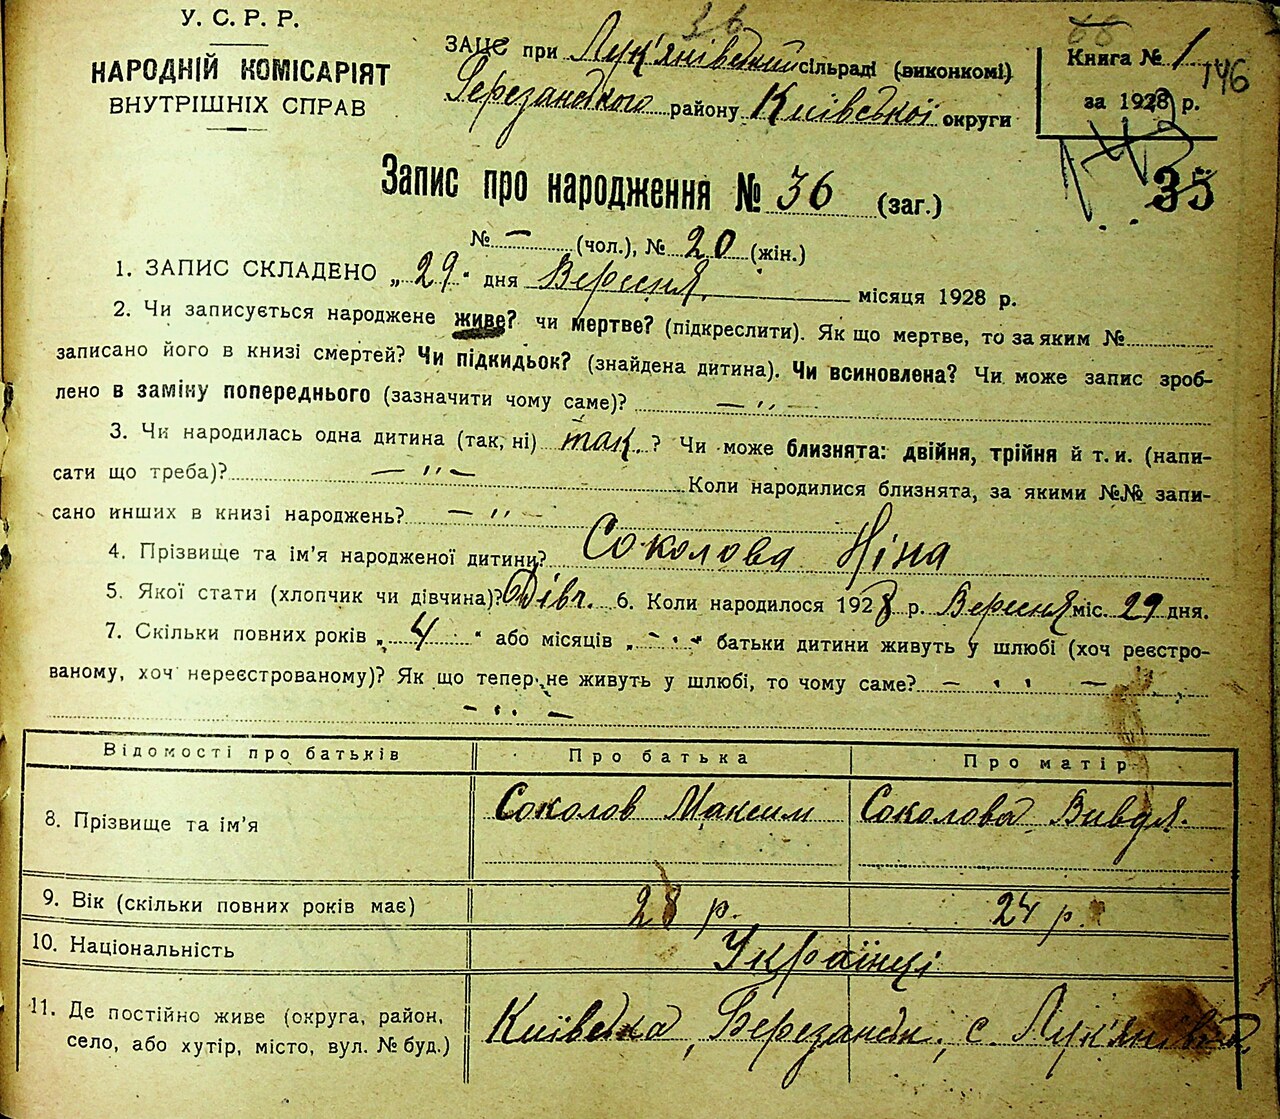 У. С. Р. Р.
НАРОДНІЙ КОМІСАРІЯТ
ВНУТРІШНІХ СПРАВ
36
ЗАПС при Лук'янівський сільраді (виконкомі)
Березанського району Київської округи
Книга № 1
146
за 1928 р.
35
Запис про народження № 36 (заг.)
№ — (чол.), № 20 (жін.)
1. ЗАПИС СКЛАДЕНО „29" дня Вересня місяця 1928 р.
2. Чи записується народжене живе? чи мертве? (підкреслити). Як що мертве, то за яким №
записано його в книзі смертей? Чи підкидьок? (знайдена дитина). Чи всиновлена? Чи може запис зроб-
лено в заміну попереднього (зазначити чому саме)? — „ —
3. Чи народилась одна дитина (так, ні) так. ? Чи може близнята: двійня, трійня й т. и. (напи-
сати що треба)? — „ — Коли народилися близнята, за якими №№ запи-
сано инших в книзі народжень? — „
4. Прізвище та ім'я народженої дитини? Соколова Ніна
5. Якої стати (хлопчик чи дівчина)? Дівч. 6. Коли народилося 1928 р. Вересня міс. 29 дня.
7. Скільки повних років „ 4 " або місяців „ — " батьки дитини живуть у шлюбі (хоч реєстро-
ваному, хоч нереєстрованому)? Як що тепер не живуть у шлюбі, то чому саме? — „ —
— „ —
Відомості про батьків Про батька Про матір
8. Прізвище та ім'я Соколов Максим Соколова Вивдя.
9. Вік (скільки повних років має) 28 р. 24 р.
10. Національність Українці
11. Де постійно живе (округа, район,
село, або хутір, місто, вул. № буд.) Київська, Березанськ., с. Лук'янівка